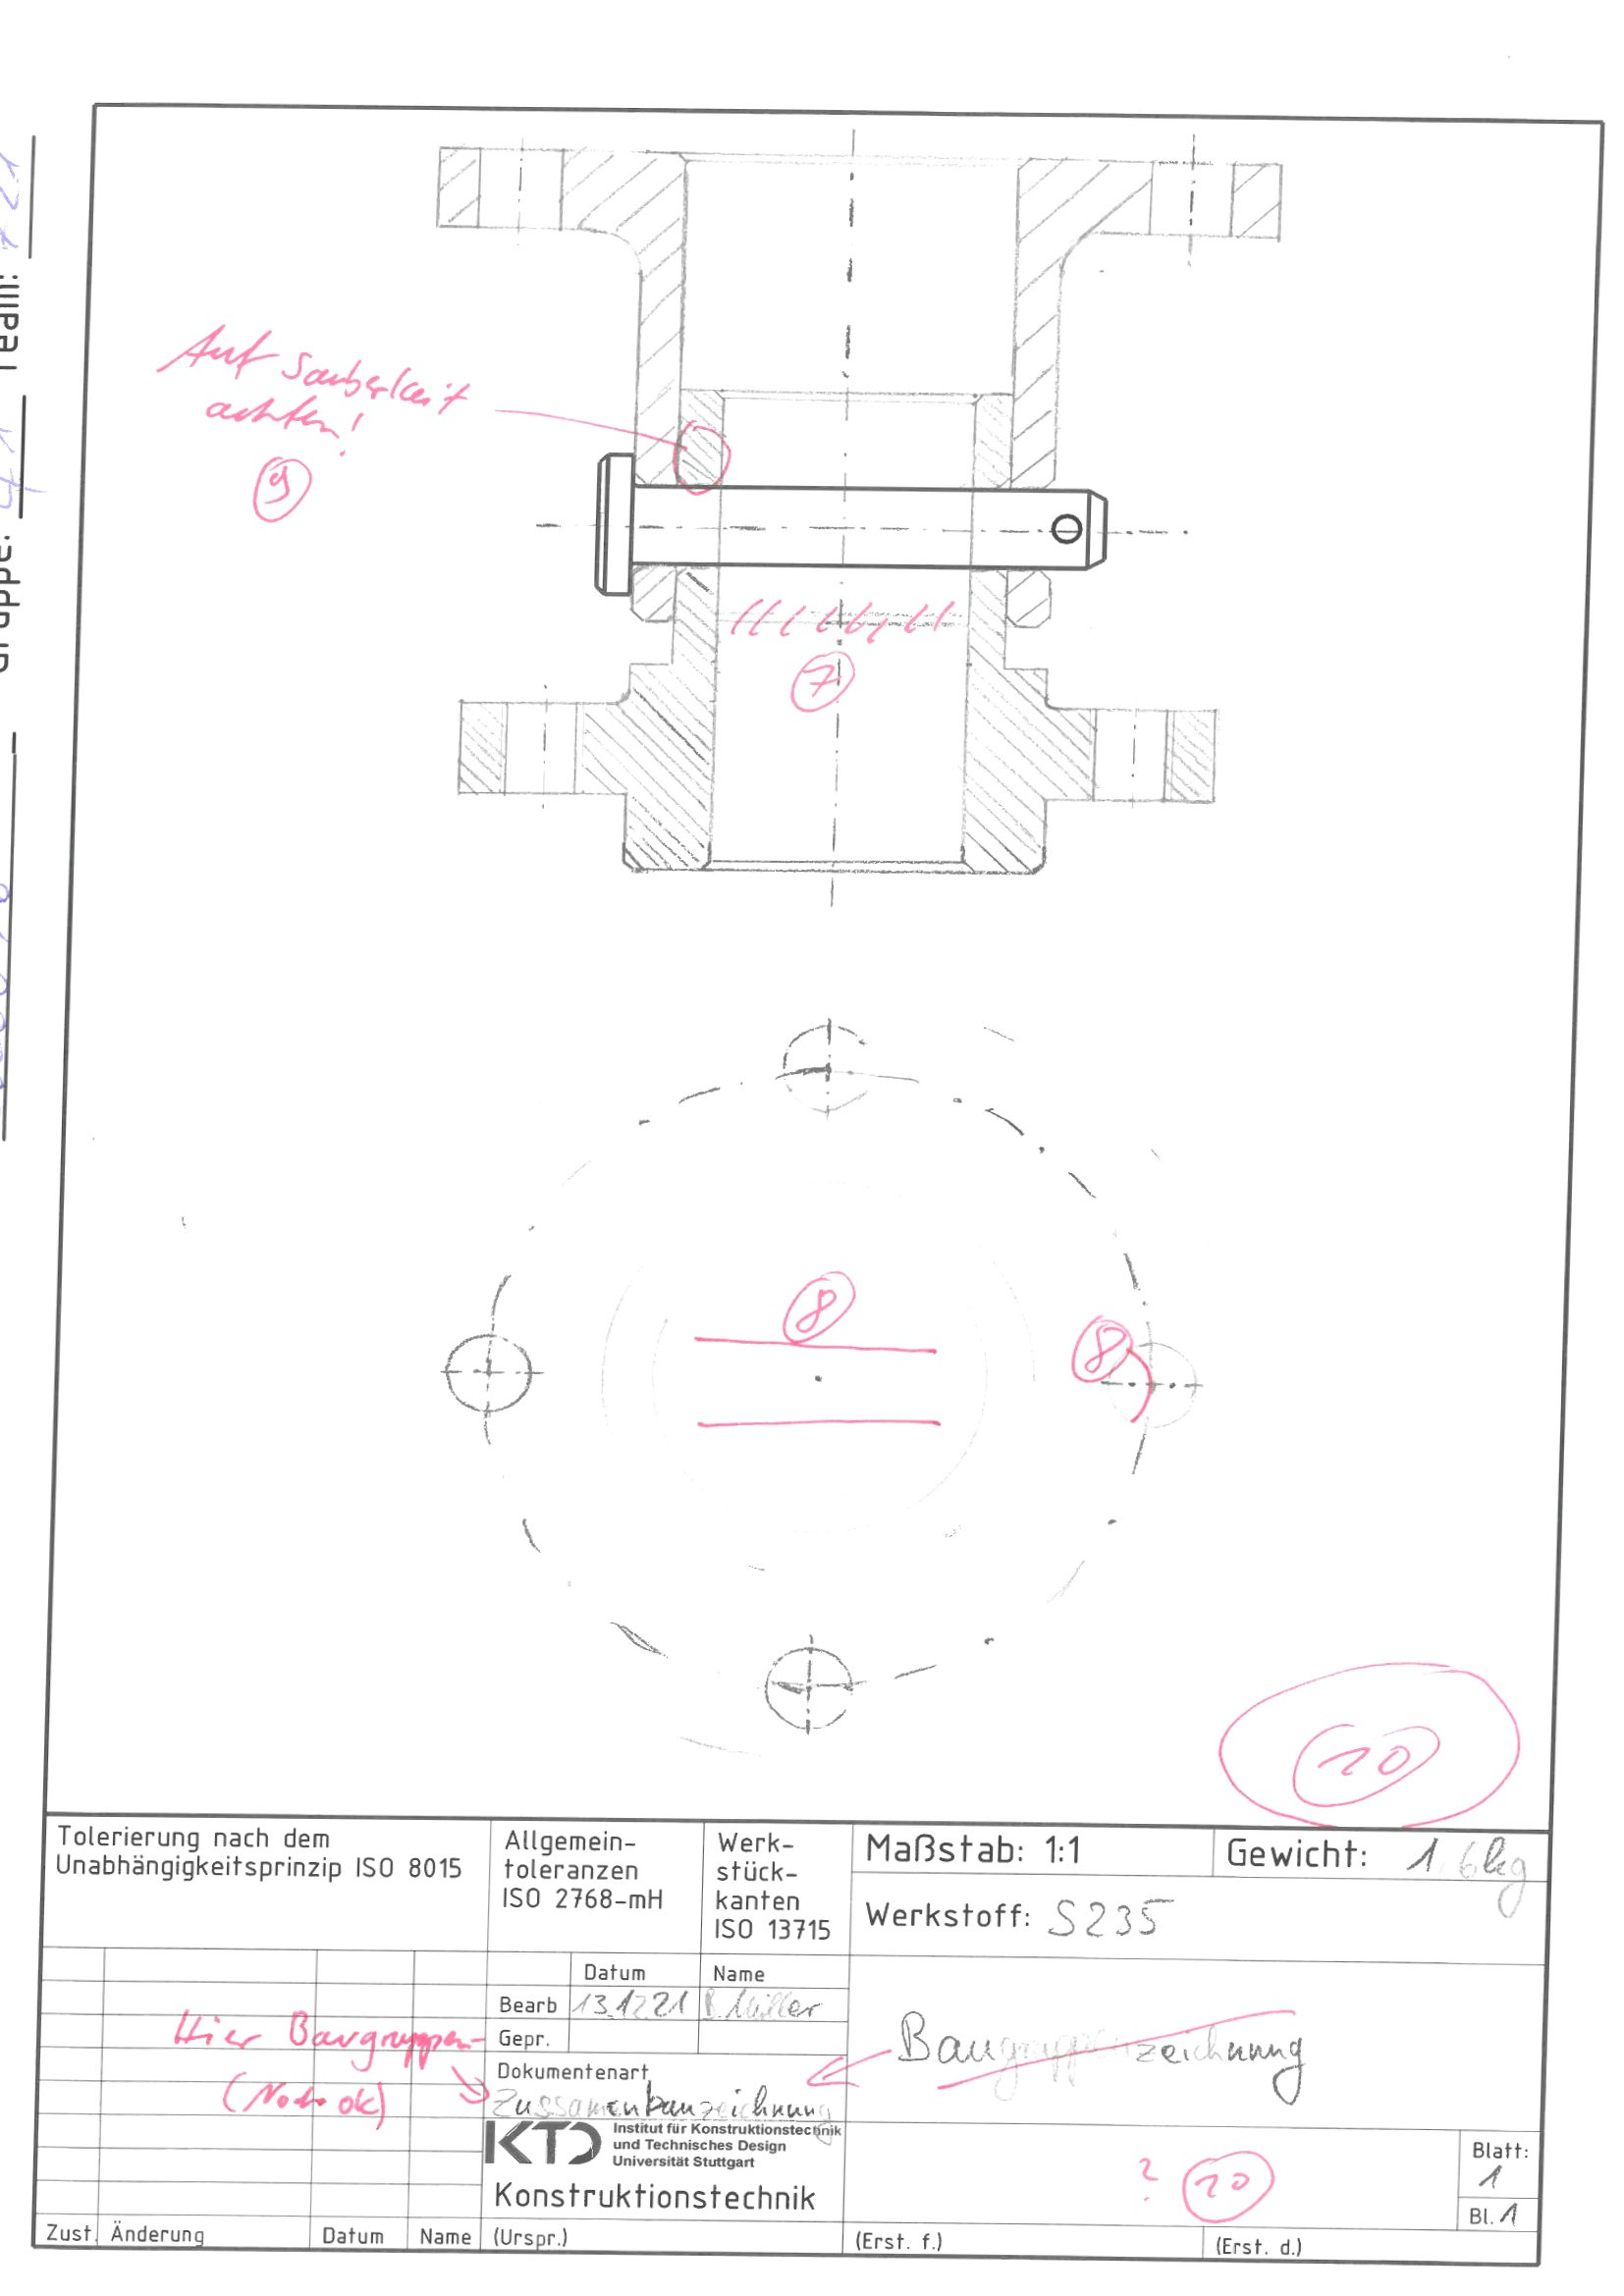 Auf Sauberkeit
achten!
9
7
8
8
10
Team:
Gruppe:
Tolerierung nach dem
Unabhängigkeitsprinzip ISO 8015
Allgemein-
toleranzen
ISO 2768-mH
Werk-
stück-
kanten
ISO 13715
Maßstab: 1:1
Gewicht: 1,6kg
Werkstoff: S235
Datum
Name
Bearb 13.12.21 B. Müller
Gepr.
Hier Baugruppen-
(Noch ok)
Dokumentenart
Zussamenbauzeichnung
Baugruppenzeichnung
KTD
Institut für Konstruktionstechnik
und Technisches Design
Universität Stuttgart
Konstruktionstechnik
? 10
Blatt:
1
Bl. 1
Zust. Änderung Datum Name (Urspr.) (Erst. f.) (Erst. d.)